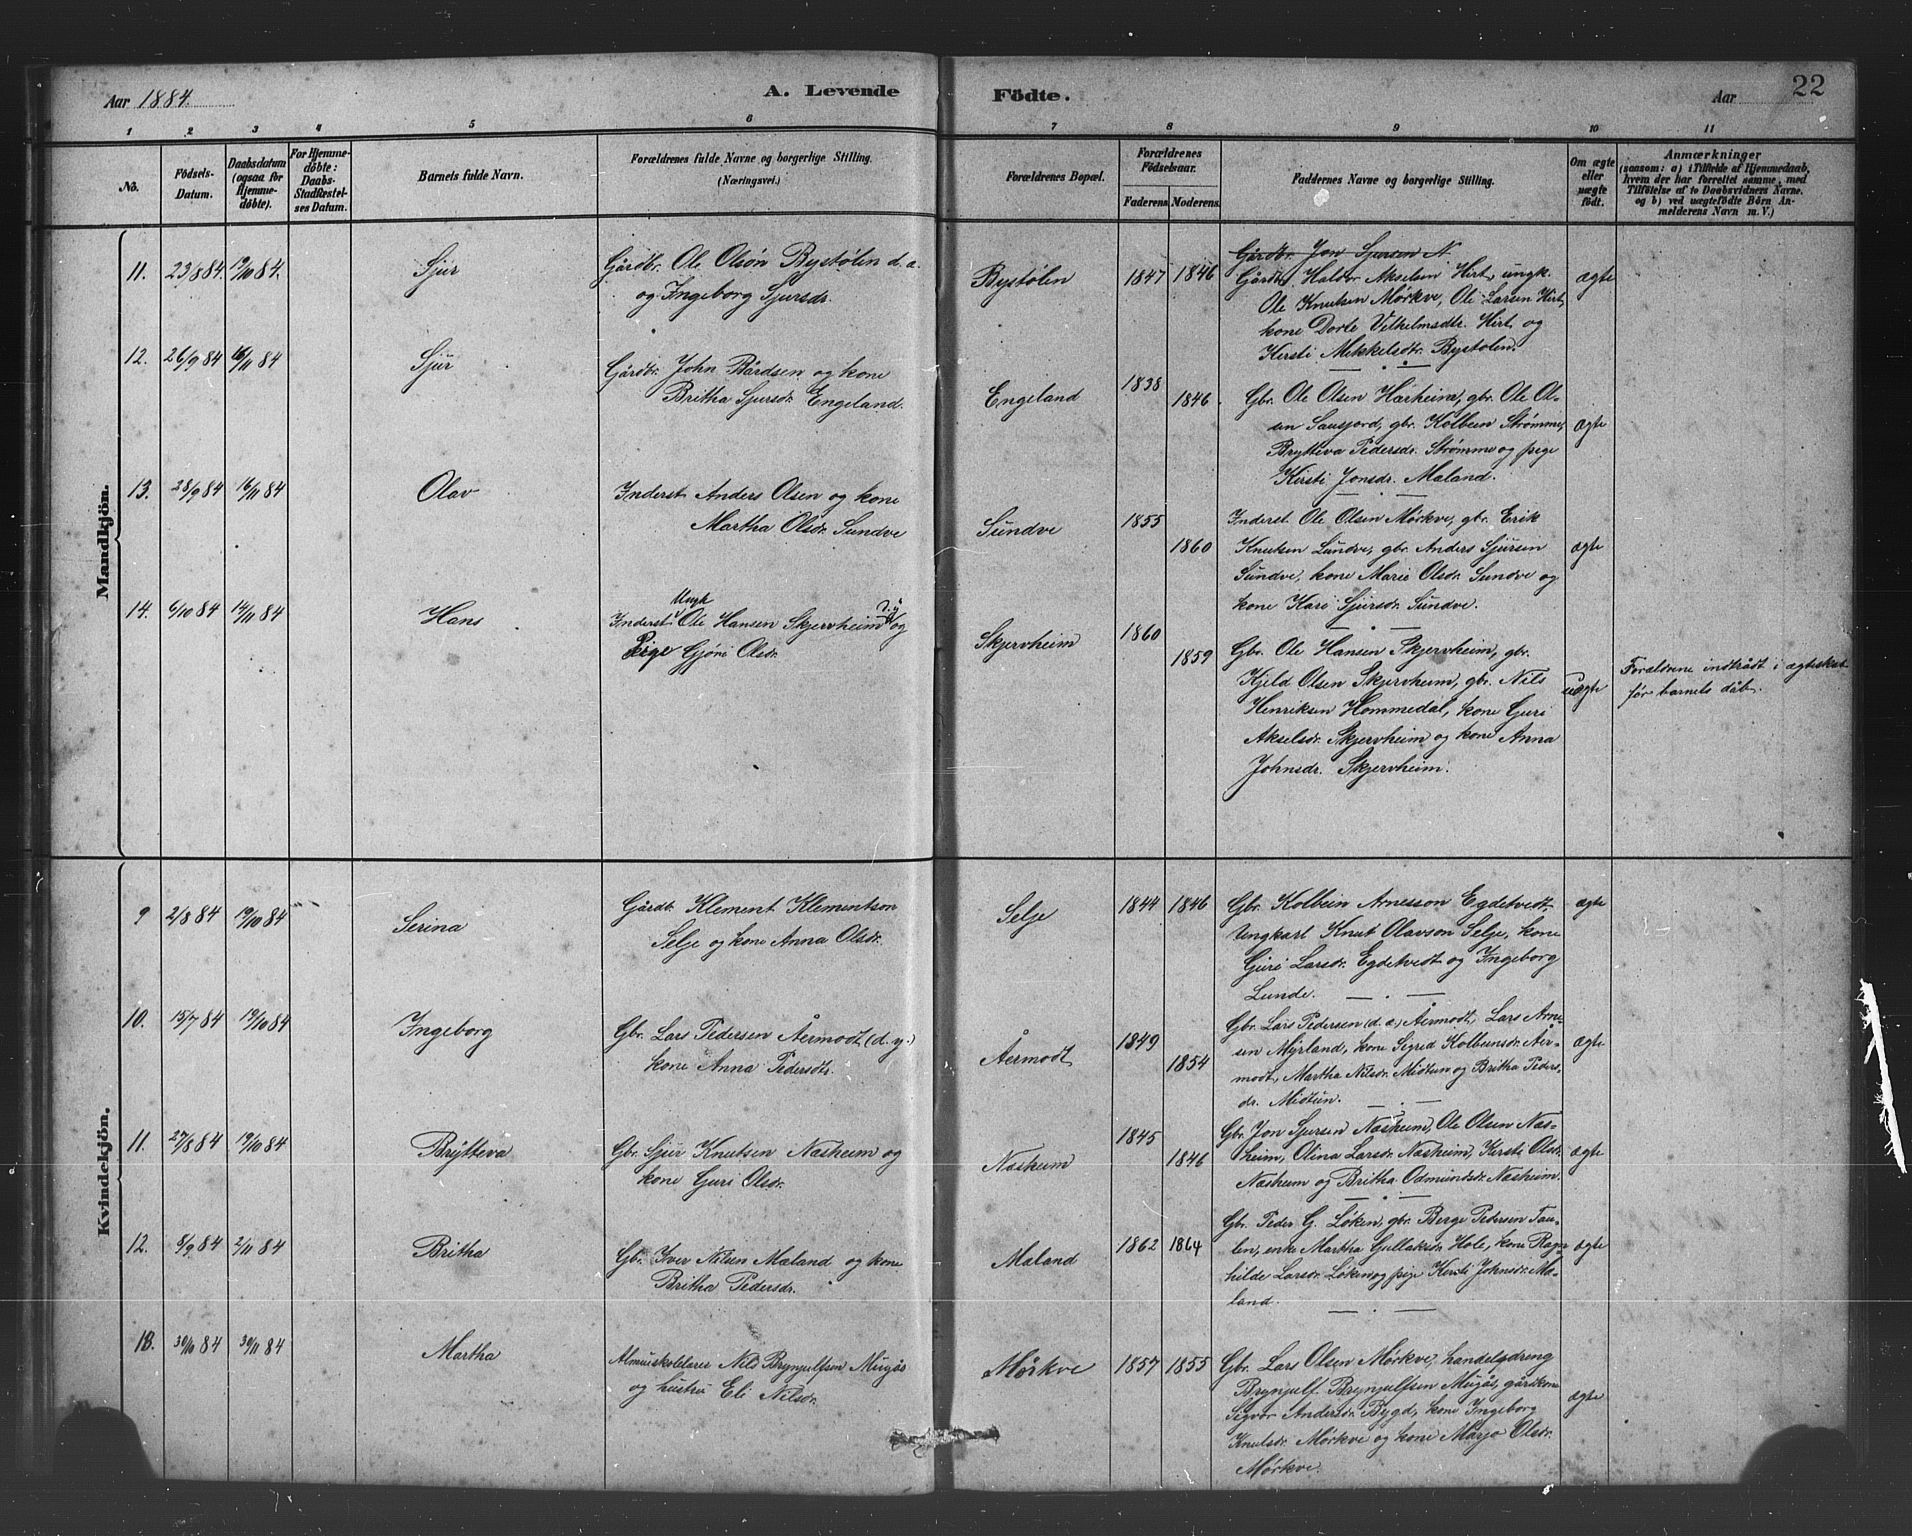 Aar 1884.
A. Levende Födte.
Aar
22
1 2 3 4 5 6 7 8 9 10 11
No.
Födsels-Datum.
Daabsdatum (ogsaa for Hjemme-döbte).
For Hjemme-döbte: Daabs-Stadfæstel-ses Datum.
Barnets fulde Navn.
Forældrenes fulde Navne og borgerlige Stilling. (Næringsvei.)
Forældrenes Bopæl.
Forældrenes Födselsaar.
Faderens Moderens.
Faddernes Navne og borgerlige Stilling.
Om ægte eller uægte födt.
Anmærkninger
(saasom: a) i Tilfælde af Hjemmedaab, hvem der har forrettet samme, med Tilföielse af to Daabsvidners Navne, og b) ved uægtefödte Börn An-melderens Navn m. V.)
Mandkjön.
11. 23/8 84. 19/10 84. Sjur
Gårdbr. Ole Olsón Bystølen d. a.
og Ingeborg Sjursdr.
Bystølen 1847 1846
Gårdbr. Jon Sjursen N
Gårdbr. Haldor Akselsen Hirt, ungk.
Ole Knutsen Mørkve, Ole Larsen Hirt,
kone Dorte Vilhelmsdtr. Hirt og
Kirsti Mikkelsdtr. Bystølen.
ægte
12. 26/9 84 16/11 84 Sjur
Gårdbr. John Bårdsen og kone
Britha Sjursdr. Engeland.
Engeland 1838 1846.
Gbr. Ole Olsen Harheim, gbr. Ole Ol-
sen Sausjord, gbr. Kolbein Strømme,
Brytteva Pedersdr. Strømme og pige
Kirsti Jonsdr. Maland.
ægte
13. 28/9 84 16/11 84 Olav
Inderst Anders Olsen og kone
Martha Olsdr. Sundve
Sundve 1855 1860
Inderst Ole Olsen Mørkve, gbr. Erik
Knutsen Lundve, gbr. Anders Sjursen
Sundve, kone Marie Olsdr. Sundve og
kone Kari Sjursdr. Sundve.
ægte
14. 6/10 84 14/11 84 Hans
Ungk
Inderst Ole Hansen Skjervheim d. y. og
Pige Gjøri Olsdr.
Skjervheim 1860 1859
Gbr. Ole Hansen Skjervheim, gbr.
Kjeld Olsen Skjervheim, gbr. Nils
Henriksen Hommedal, kone Guri
Akselsdr. Skjervheim og kone Anna
Johnsdr. Skjervheim.
uægte
Forældrene indtrådt i ægteskab
før barnets dåb.
Kvindekjön.
9 2/8 84 19/10 84 Serina
Gårdbr. Klement Klementson
Selje og kone Anna Olsdr.
Selje 1844 1846
Gbr. Kolbein Arnesson Egdetvedt,
Ungkarl Knut Olavson Selje, kone
Guri Larsdr. Egdetvedt og Ingeborg
Lunde.
ægte
10. 15/7 84 19/10 84 Ingeborg
Gbr. Lars Pedersen Åermodt (d. y.)
kone Anna Pedersdtr.
Åermodt 1849 1854
Gbr. Lars Pedersen (d. æ) Åermodt, Lars Arne-
sen Myrland, kone Sigrid Kolbensdr. Åer-
modt, Martha Nilsdr. Midtun og Britha Peders-
dr. Midtun.
ægte
11. 27/8 84 19/10 84 Brytteva
Gbr. Sjur Knutsen Næsheim og
kone Guri Olsdr.
Næsheim 1845 1846
Gbr. Jon Sjursen Næsheim, Ole Olsen Næs-
heim, Olina Larsdr. Næsheim, Kirsti Olsdr.
Næsheim og Britha Odmundsdr. Næsheim.
ægte
12. 8/9 84 2/11 84 Britha
Gbr. Iver Nilsen Mæland og kone
Britha Pedersdr.
Mæland 1862 1864
Gbr. Peder G. Løken, gbr. Berge Pedersen Tau-
len, enke Martha Gullaksdr. Hole, kone Ragn-
hilde Larsdr. Løken og pige Kirsti Johnsdr. Mæ-
land.
ægte
13. 30/10 84 30/11 84 Martha
Almueskolelærer Nils Brynjulfsen Mugås
og hustru Eli Nilsdr.
Mørkve 1857 1855
Gbr. Lars Olsen Mørkve, handelsdreng
Brynjulf Brynjulfsen Mugås, gårdkone
Sigvor Andersdr. Bygd, kone Ingeborg
Knutsdr. Mørkve og kone Marjo Olsdr.
Mørkve.
ægte